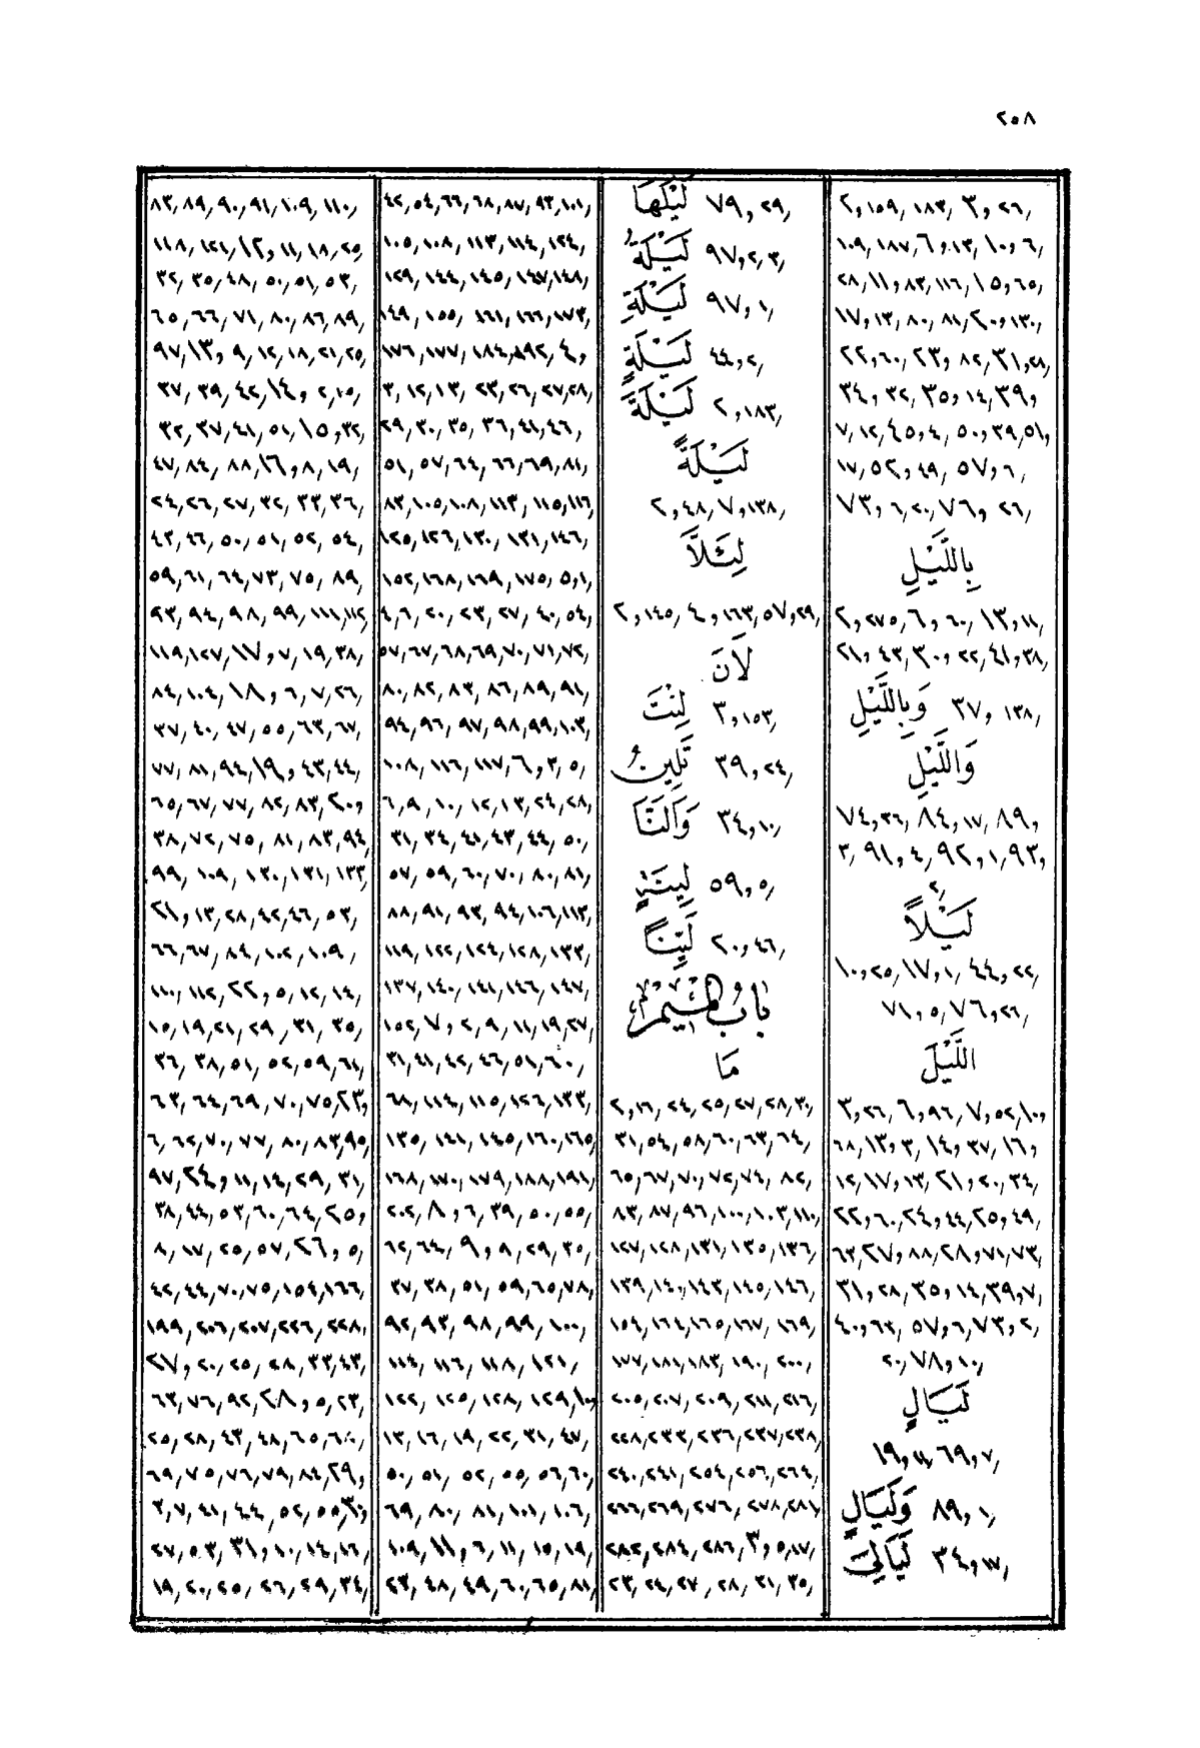 ٢٥٨
٢,١٥٩, ١٨٣, ٣,٢٦,
١٠٩, ١٨٧,٦,١٣,١٠,٦,
٢٨,١١,٨٣,١١٦,١٥,٦٥,
١٧,١٢,٨٠,٨١,٢٠,١٣٠,
٢٢,٦٠, ٢٣, ٨٢,٣١,٢٩,
٣٤, ٣٢, ٣٥,١٤,٣٩,
٧,١٢,٤٥,٤, ٥٠,٢٩,٥١,
١٧,٥٢, ٤٩, ٥٧,٦,
٧٣,٦,٢٠,٧٦, ٢٦,
بِاللَّيْلِ
٢,٢٧٥,٦,٦٠,١٣,١١,
٢١,٤٢,٣٠,٢٢,٤١,٣٨,
وَبِاللَّيْلِ ٣٧, ١٣٨,
وَاللَّيْلِ
٧٤,٣٣, ٨٤,١٧, ٨٩,
٣, ٩١,٤, ٩٢,١,٩٣,
٢,
لَيْلًا
١٠,٢٥,١٧,١, ٤٤,٢٣,
٧١,٥,٧٦,٢٦,
اللَّيْلَ
٣,٢٦,٦,٩٦,٧,٥٤,١٠,
٦٨,١٣,٣,١٤,٣٧,١٦,
١٢,١٧,١٢,٢١,٢٠,٣٤,
٢٢,٦٠,٢٤,٤٤,٢٥,٤٩,
٦٢,٢٧,٨٨,٢٨,٧١,٧٣,
٣١,٢٨,٣٥,١٤,٣٩,٧,
٤٠,٦٢, ٥٧,٦,٧٣,٢,
٢٠,٧٨,١٠,
لَيَالٍ
١٩,١١, ٦٩,٧,
وَلَيَالٍ ٨٩,١,
لَيَالِيَ ٣٤,١٧,
لَيْلَهَا ٧٩,٢٩,
لَيْلَةُ ٩٧,٢,٣,
لَيْلَةِ ٩٧,١,
لَيْلَةٍ ٤٤,٢,
لَيْلَةَ ٢,١٨٣,
لَيْلَةً
٢,٤٨,٧,١٣٨,
لِئَلَّا
٢,١٤٥, ٤,١٦٣,٥٧,٢٩,
لَانَ
لِنْتَ ٣,١٥٣,
تَلِينُ ٣٩,٢٤,
وَأَلَنَّا ٣٤,١٠,
لِينَةٍ ٥٩,٥,
لَيِّنًا ٢٠,٤٦,
بَابُ الْمِيمِ
مَا
٢,١٦, ٢٤, ٢٥,٢٧,٢٨,٣٠,
٣١,٥٤, ٥٨,٦٠,٦٣,٦٤,
٦٥,٦٧,٧٠,٧٢,٧٤, ٨٢,
٨٣, ٨٧,٩٦,١٠٠,١٠٣,١١٠,
١٢٧,١٢٨,١٣١,١٣٥,١٣٦,
١٣٩,١٤٠,١٤٣,١٤٥,١٤٦,
١٥٤,١٦٤,١٦٥,١٦٧, ١٦٩,
١٧٧,١٨١,١٨٣,١٩٠,٢٠٠,
٢٠٥,٢٠٧, ٢٠٩, ٢١١,٢١٦,
٢٢٨,٢٣٣,٢٣٦,٢٣٧,٢٣٨,
٢٤٠,٢٤١,٢٥٤,٢٥٦,٢٦٤,
٢٦٦,٢٦٩,٢٧٦, ٢٧٨,٢٨١,
٢٨٢,٢٨٤,٢٨٦,٣,٥,١٧,
٢٣,٢٤,٢٧, ٢٨,٣١,٣٥,
٤٢,٥٤,٦٦,٦٨,٨٧,٩٣,١٠١,
١٠٥,١٠٨,١١٣,١١٤,١٢٤,
١٢٩,١٤٤,١٤٥,١٤٧,١٤٨,
١٤٩, ١٥٥, ١٦١,١٦٦,١٧٣,
١٧٦,١٧٧,١٨٤,١٩٢,٤,
٣,١٢,١٣,٢٣,٢٦,٢٧,٢٨,
٢٩,٣٠,٣٥,٣٦,٤١,٤٦,
٥١,٥٧,٦٤,٦٦,٦٩,٨١,
٨٣,١٠٥,١٠٨,١١٣,١١٥,١١٦,
١٢٥,١٢٦,١٣٠,١٣١,١٤٦,
١٥٢,١٦٨,١٦٩,١٧٥,٥,١,
٤,٦,٢٠,٢٣,٢٧,٤٠,٥٤,
٥٧,٦٧,٦٨,٦٩,٧٠,٧١,٧٢,
٨٠,٨٢,٨٣,٨٦,٨٩,٩١,
٩٤,٩٦, ٩٧,٩٨,٩٩,١٠٣,
١٠٨,١١٦,١١٧,٦,٣,٥,
٦,٩,١٠,١٢,١٣,٢٤,٢٨,
٣١,٣٤,٤١,٤٣,٤٤,٥٠,
٥٧,٥٩,٦٠,٧٠,٨٠,٨١,
٨٨,٩١,٩٣,٩٤,١٠٦,١١٣,
١١٩,١٢٢,١٢٤,١٢٨,١٣٣,
١٣٧,١٤٠,١٤١,١٤٦,١٤٧,
١٥٢,٧,٢,٩,١١,١٩,٢٧,
٣١,٤١,٤٢,٤٦,٥١,٦٠,
٦٨,١١٤,١١٥,١٢٦,١٣٣,
١٣٥,١٤١,١٤٥,١٦٠,١٦٥,
١٦٨,١٧٠,١٧٩,١٨٨,١٩٤,
٢٠٢,٨,٦,٣٩,٥٠,٥٥,
٦٢,٦٤,٩,٨,٢٩,٣٥,
٣٧,٣٨,٥١,٥٩,٦٥,٧٨,
٩٢,٩٣,٩٨,٩٩,١٠٠,
١١٤,١١٦,١١٨,١٢١,
١٢٢,١٢٥,١٢٨,١٢٩,١٠,
١٣,١٦,١٩,٢٢,٣١,٤٧,
٥٠,٥١,٥٢,٥٥,٥٦,٦٠,
٦٩,٨٠,٨١,١٠١,١٠٦,
١٠٩,١١,٦,١١,١٥,١٩,
٤٣,٤٨,٤٩,٦٠,٦٥,٨١,
٨٣,٨٩,٩٠,٩١,١٠٩,١١٠,
١١٨,١٢١,١٢,١١,١٨,٢٥,
٣٢,٣٥,٤٨,٥٠,٥١,٥٣,
٦٥,٦٦,٧١,٨٠,٨٦,٨٩,
٩٧,١٣,٩,١٢,١٨,٢١,٢٥,
٣٧,٣٩,٤٢,١٤,٢,١٥,
٣٢,٣٧,٤١,٥١,١٥,٣٢,
٤٧,٨٤,٨٨,١٦,٨,١٩,
٢٤,٢٦,٢٧,٣٢,٣٣,٣٦,
٤٣,٤٦,٥٠,٥١,٥٢,٥٤,
٥٩,٦١,٦٤,٧٣,٧٥,٨٩,
٩٣,٩٤,٩٨,٩٩,١١١,١١٢,
١١٩,١٢٧,١٧,٧,١٩,٣٨,
٨٤,١٠٤,١٨,٦,٧,٢٦,
٣٧,٤٠,٤٧,٥٥,٦٣,٦٧,
٧٧,٨١,٩٤,١٩,٤٣,٤٤,
٦٥,٦٧,٧٧,٨٢,٨٣,٢٠,
٣٨,٧٢,٧٥,٨١,٨٣,٩٤,
٩٩,١٠٩,١٢٠,١٣١,١٣٣,
٢١,١٣,٢٨,٤٢,٤٦,٥٣,
٦٦,٦٧,٨٤,١٠٢,١٠٩,
١١٠,١١٢,٢٢,٥,١٢,١٤,
١٥,١٩,٢١,٢٩,٣١,٣٥,
٣٦,٣٨,٥١,٥٢,٥٩,٦٤,
٦٣,٦٤,٦٩,٧٠,٧٥,٢٣,
٦,٦٢,٧٠,٧٧,٨٠,٨٣,٩٥,
٩٧,٢٤,١١,١٤,٢٩,٣١,
٣٨,٤٤,٥٣,٦٠,٦٤,٢٥,
٨,١٧,٢٥,٥٧,٢٦,٥,
٤٢,٤٤,٧٠,٧٥,١٥٤,١٦٦,
١٩٩,٢٠٦,٢٠٧,٢٢٦,٢٢٨,
٢٧,٢٠,٢٥,٢٨,٣٣,٤٣,
٦٣,٧٦,٩٢,٢٨,٥,٢٣,
٢٥,٢٨,٤٣,٤٨,٦٥,٦٨,
٦٩,٧٥,٧٦,٧٩,٨٤,٢٩,
٢,٧,٤١,٤٤,٥٢,٥٥,٣٠,
٢٧,٥٣,٣١,١٠,١٤,١٦,
١٩,٢٠,٢٥,٢٦,٢٩,٣٤,